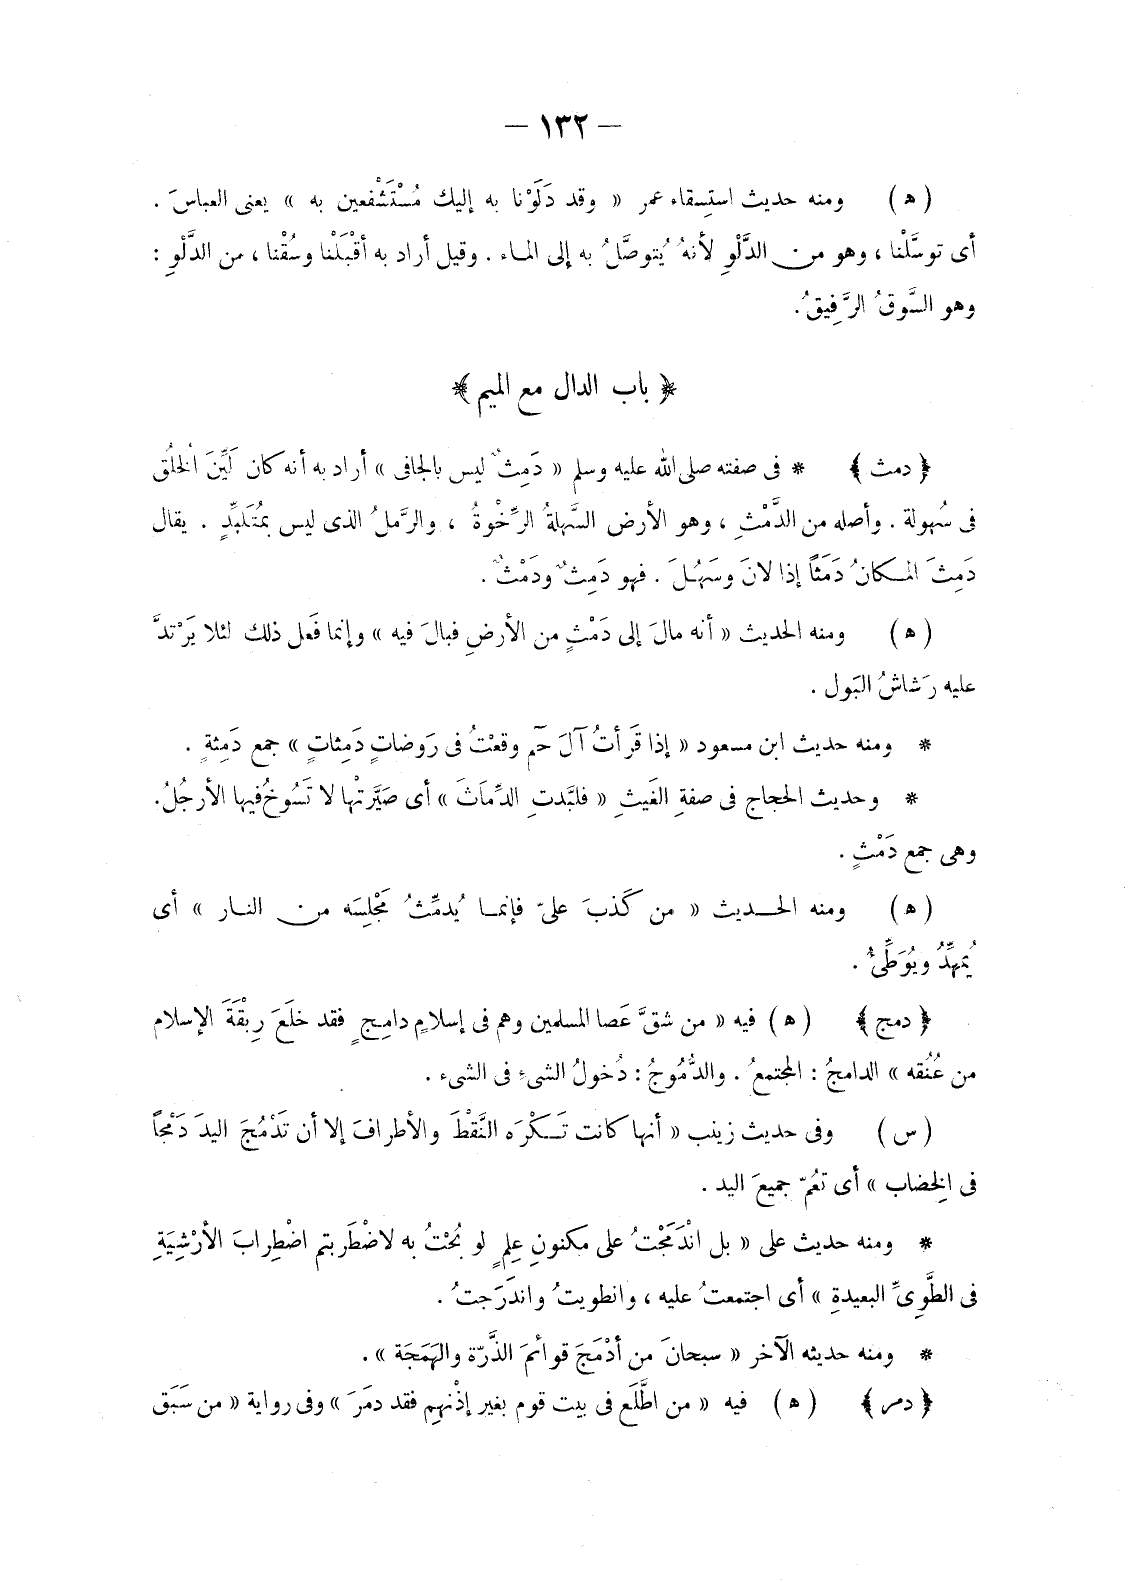 — ١٣٢ —
( ﻫ ) ومنه حديث استِسقاء عمر « وقد دَلَوْنا به إليك مُسْتَشْفعين به » يعنى العباسَ .
أى توسَّلْنا ، وهو من الدَّلْوِ لأنهُ يُتوصَّلُ به إلى الماء . وقيل أراد به أقْبَلْنا وسُقْنا ، من الدَّلْوِ :
وهو السَّوقُ الرَّفِيقُ.
﴿ باب الدال مع الميم ﴾
﴿ دمث ﴾ * فى صفته صلى الله عليه وسلم « دَمِثٌ ليس بالجافى » أراد به أنه كان لَيِّنَ الخلُق
فى سُهولة . وأصله من الدَّمْثِ ، وهو الأرض السَّهلةُ الرِّخْوةُ ، والرَّملُ الذى ليس بمُتَلبِّدٍ . يقال
دَمِثَ المكانُ دَمَثاً إذا لانَ وسَهُلَ . فهو دَمِثٌ ودَمْثٌ .
( ﻫ ) ومنه الحديث « أنه مالَ إلى دَمْثٍ من الأرضِ فبالَ فيه » وإنما فَعل ذلك لئلا يَرْتدَّ
عليه رَشاشُ البَول .
* ومنه حديث ابن مسعود « إذا قَرأتُ آلَ حَم وقعْتُ فى رَوضاتٍ دَمِثاتٍ » جمع دَمِثةٍ .
* وحديث الحجاج فى صفةِ الغَيثِ « فلبَّدتِ الدِّمَاثَ » أى صَيَّرتْها لا تَسُوخُ فيها الأرجُلُ.
وهى جمع دَمْثٍ .
( ﻫ ) ومنه الحديث « من كَذبَ علىّ فإنما يُدمِّثُ مَجْلِسَه من النار » أى
يُمهِّدُ ويُوَطِّئُ .
﴿ دمج ﴾ ( ﻫ ) فيه « من شقَّ عَصا المسلمين وهم فى إسلامٍ دامِجٍ فقد خلَعَ رِبْقَةَ الإسلام
من عُنُقه » الدامجُ : المجتمعُ . والدُّمُوجُ : دُخولُ الشىءِ فى الشىء .
( س ) وفى حديث زينب « أنها كانت تَكْرَه النَّقْطَ والأطرافَ إلا أن تَدْمُجَ اليدَ دَمْجاً
فى الخِضاب » أى تعُمّ جميعَ اليد .
* ومنه حديث على « بل انْدَمَجْتُ على مكنونِ عِلمٍ لو بُحْتُ به لاضْطَربتم اضْطِرابَ الأرْشِيَةِ
فى الطَّوِىِّ البعيدةِ » أى اجتمعتُ عليه ، وانطويتُ واندَرَجتُ .
* ومنه حديثه الآخر « سبحانَ من أدْمَجَ قوائمَ الذَّرّة والهَمَجَة » .
﴿ دمر ﴾ ( ﻫ ) فيه « من اطَّلَع فى بيت قوم بغير إذْنهِم فقد دمَرَ » وفى رواية « من سَبَق